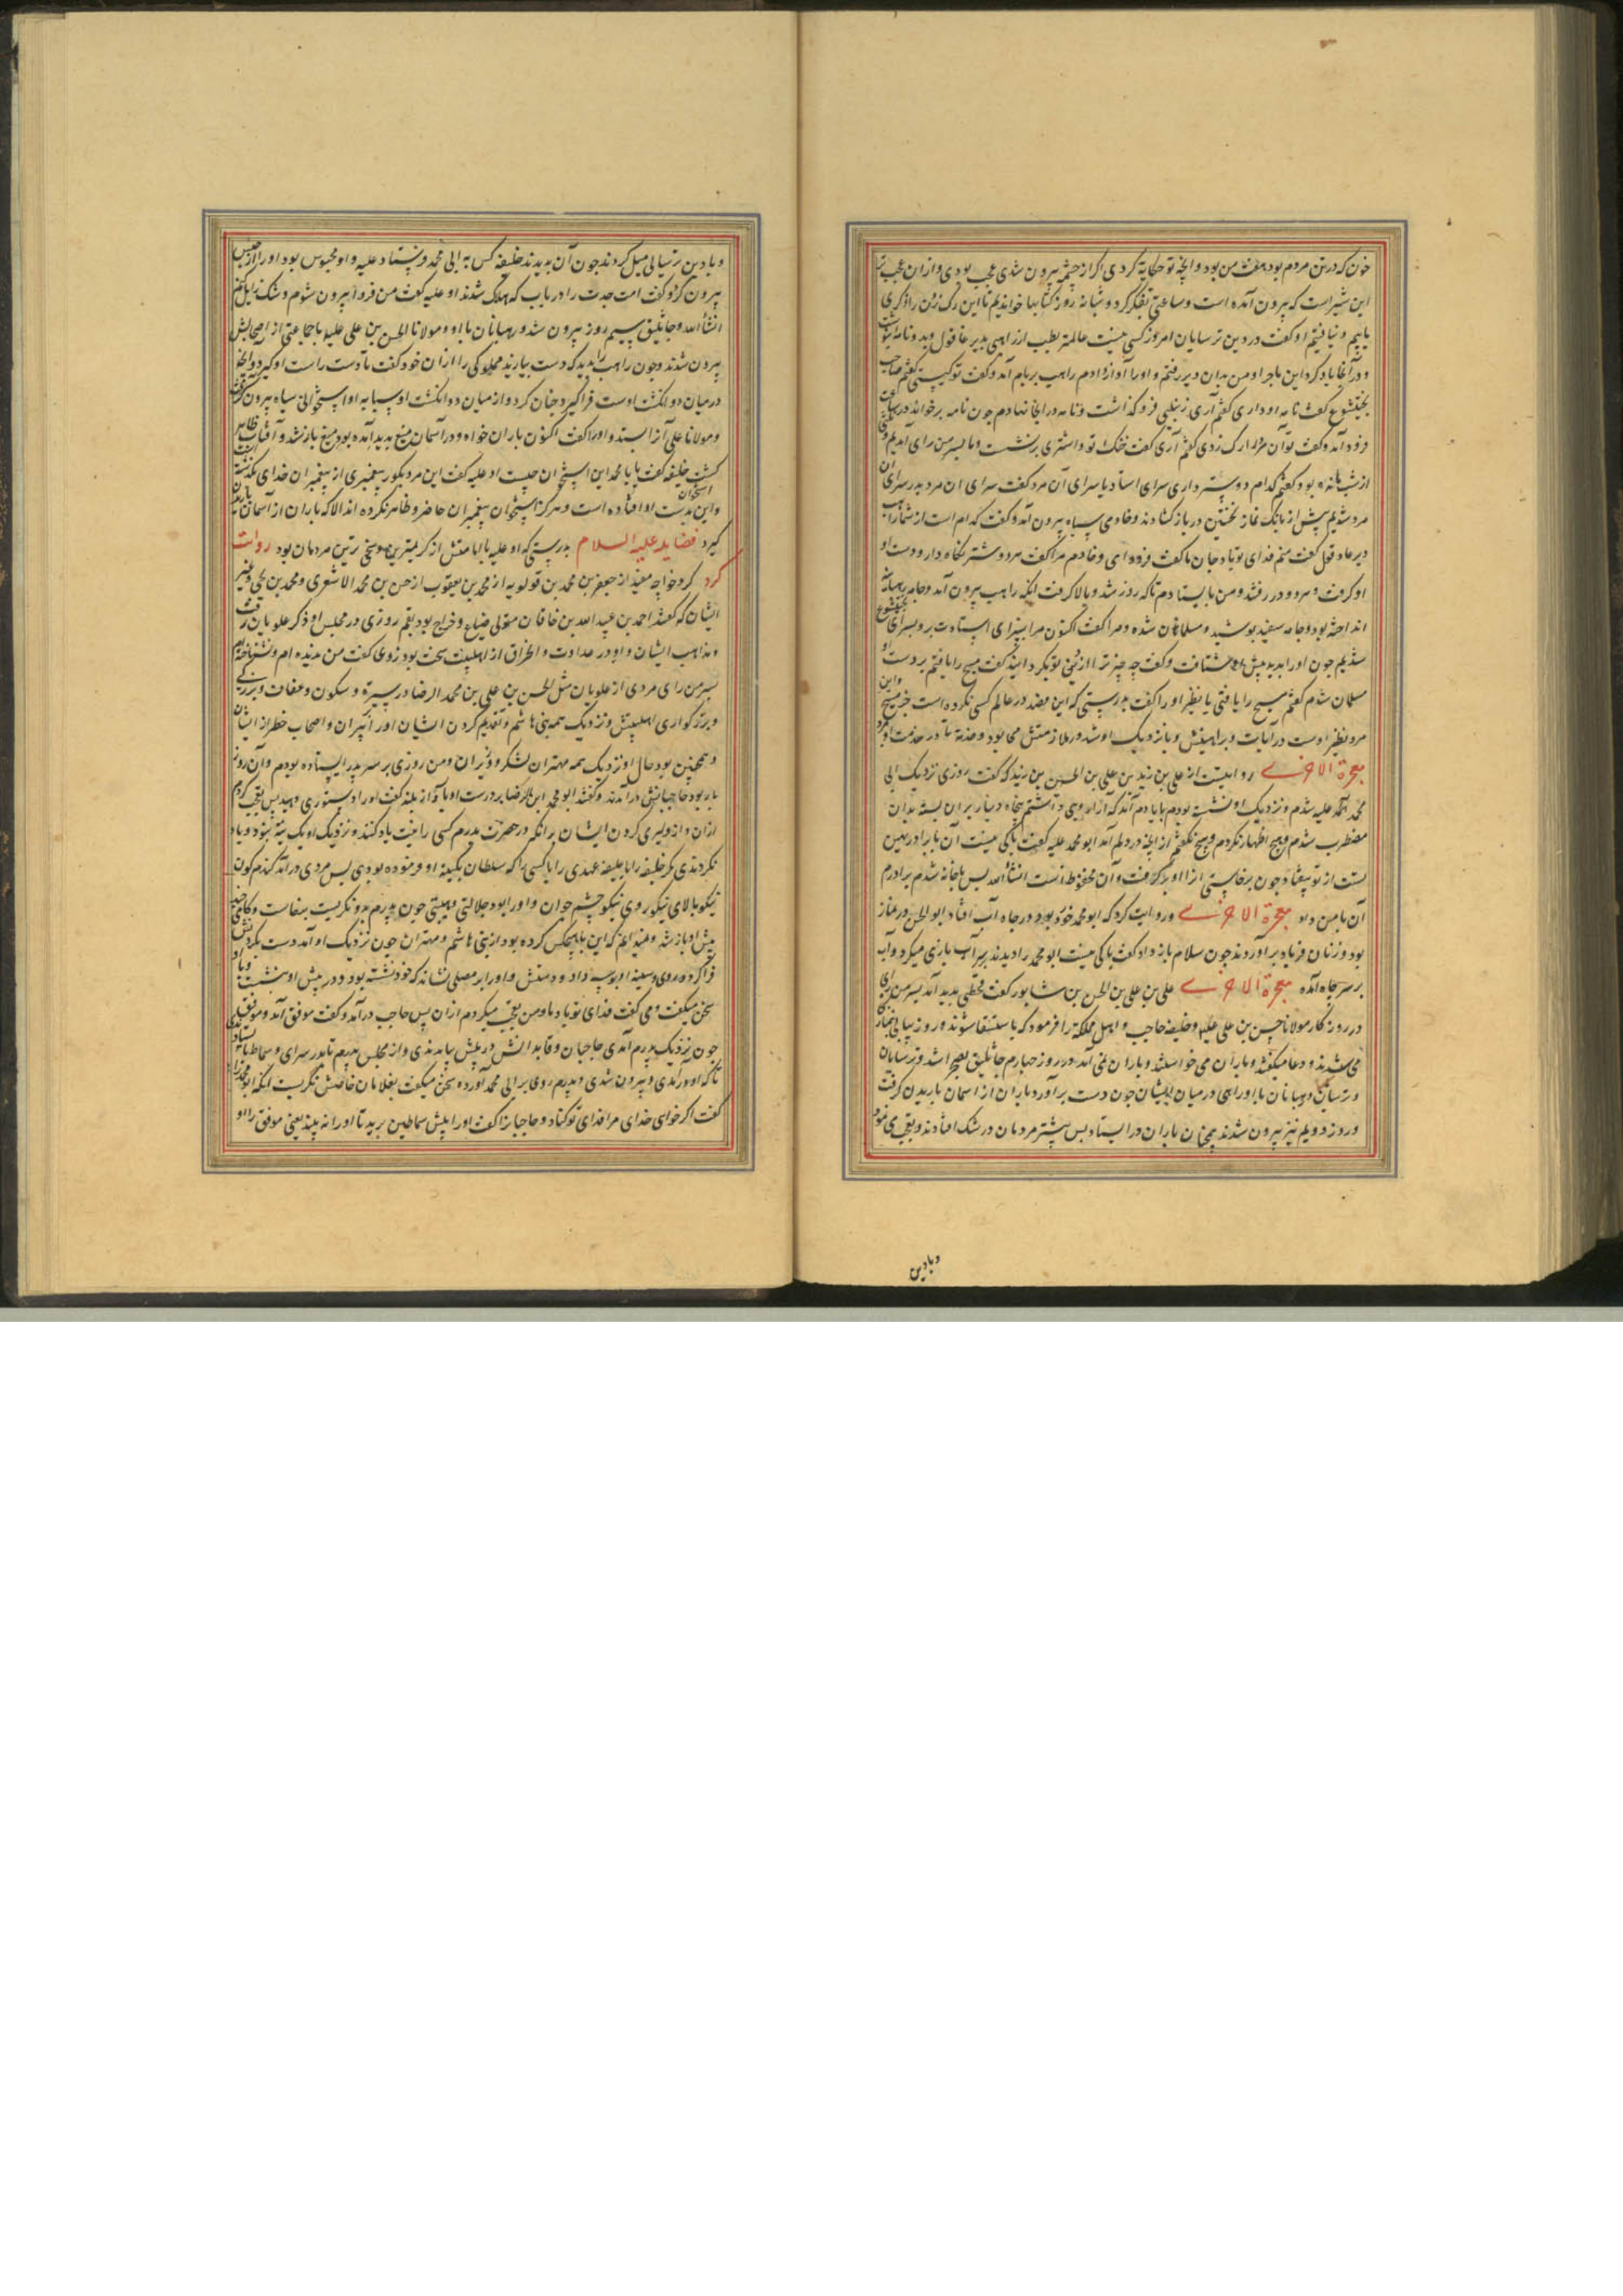 خون که در تن مردم بود هفت من بود و انچه تو حکایه کردی اگر از چشمه بیرون شدی عجب بودی و از ان عجب تر
این شیر است که بیرون آمده است و ساعتی تفکر کرد و شبانه روز کتابها خواندیم تا این رک زدن را ذکری
یابیم و نیافتیم او گفت در دین ترسایان امروز کسی نیست عالمتر بطب از راهبی بدیر عاقول وبدو نامه
و در آنجا یاد کرد این ماجرا و من بدان دیر رفتم و اورا آواز دادم راهب بر بام آمد و گفت تو کیستی گفتم صاحب
بختیشوع گفت نامه او داری گفتم آری زنبیلی فرو گذاشت و نامه در انجا نهادم چون نامه بر خواند در ساعت
فرود آمد و گفت تو آن مرد را رک زدی گفتم آری گفت خنک مادر تو و اشتری بر نشست و ما بسر من رای آمدیم
از شب مانده بود گفتم کدام دوستر داری سرای استاد یا سرای آن مرد گفت سرای ان مرد بدر سرای ان
مرد شدیم پیش از بانک نماز نخستین در باز کشادند و خادمی سیاه بیرون آمد و گفت که ام است از شما راهب
دیر عاقول گفت منم فدای تو باد جان ما گفت فرود ای و خادم مرا گفت هر دو شتر نگاه دار و دست او
او گرفت و هر دو در رفتند و من بایستادم تا که روز شد و بالا گرفت انگه راهب بیرون آمد و جامه رهبانه
انداخته بود و جامه سفید پوشیده و مسلمان شده و مرا گفت اکنون مرا بسرای استادت بر و بسرای بختیشوع
شدیم چون اورا بدید پیش او شتافت و گفت چه چیز ترا از دین تو بگردانید گفت مسیح را یافتم بر دست او
مسلمان شدم گفتم مسیح را یافتی یا نظیر او را گفت بدرستی که این فصد در عالم کسی نکرده است جز مسیح واین
مرد نظیر اوست در آیات و براهینش و باز نزدیک او شد و در ملازمتش می بود و خدمه تا در خدمت او بمرد
معجزة الاخری روایتست از علی بن زید بن علی بن الحسین بن زید که گفت روزی نزدیک ابی
محمد علیه شدم و نزدیک او نشسته بودم با یادم آمد که ازار و بی داشتم پنجاه دینار بران بسته بدان
مضطرب شدم و هیچ اظهار نکردم و هیچ نگفتم از انچه در دلم آمد ابو محمد علیه گفت باکی نیست آن برادر مهین
تست از تو بیفتاد چون برخاستی از اا و بر گرفت و آن محفوظ است انشاالله پس بخانه شدم برادرم
آن با من داد معجزة الاخری و روایت کرد که ابو محمد خرد بود و در چاه آب افتاد ابو الحسن در نماز
بود و زنان فریاد بر آوردند چون سلام باز داد گفت باکی نیست ابو محمد را دیدند بر سر آب بازی میکرد و آب
بر سر چاه آمده معجزة الاخری علی بن علی بن الحسن بن شابور گفت قحطی بدید آمد بسر من رای
در روزکار مولانا حسن بن علی علیه و خلیفه حاجب و اهل مملکه را فرمود که باستسقا شوند سه روز پیاپی
می شدند و دعا میگفتند و باران می خواستند و باران نمی آمد در روز چهارم جاثلیق بصحرا شد و ترسایان
و رهبانان باو و راهبی در میان ایشان چون دست بر آورد باران از اسمان باریدن گرفت
و روز دویم نیز بیرون شدند همچنان باران در ایستاد پس بیشتر مردمان در شک افتادند و تعجب می نمود
و بادین
و بادین ترسیائی میل کردند چون آن بدیدند خلیفه کس به ابی محمد فرستاد علیه و او محبوس بود او را از حبس
بیرون کرد و گفت امت جدت را دریاب که هلاک شدند او علیه گفت من فردا بیرون شوم و شک زایل کنم
انشاالله و جاثلیق سیم روز بیرون شد و رهبانان با او و مولانا الحسن بن علی علیه با جماعتی از اصحابش
بیرون شدند و چون راهب را بدید که دست بیازید مملوکی را از ان خود گفت تا دست راست او گیرد و انچه
در میان دو انگشت اوست فرا گیرد چنان کرد و از میان دو انگشت او سبابه او استخوانی سیاه بیرون گرفت
و مولانا علی آنرا بستد و اورا گفت اکنون باران خواه و در آسمان میغ بدید آمده بود میغ باز شد و آفتاب ظاهر
گشت خلیفه گفت یا با محمد این استخوان چیست او علیه گفت این مرد بگور پیغمبری از پیغمبران خدای بگذشت
و این بدست او افتاده است و هرگز استخوان پیغمبران حاضر و ظاهر نکرده اند الا که باران از آسمان باریدن
گیرد فضایله علیه السلام بدرستی که او علیه با ابا مثل از کریمترین و سخی ترین مردمان بود روایت
کرد کرد خواجه مفید از جعفر بن محمد بن قولویه از محمد بن یعقوب از حسن بن محمد الاشعری و محمد بن یحیی و غیر
ایشان که گفتند احمد بن عبید الله بن خاقان متولی ضیاع و خراج بود بقم روزی در مجلس او ذکر علویان رفت
و مذاهب ایشان و او در عداوت و انحراف از اهلبیت سخت بود روزی گفت من ندیده ام و نشناخته ام
بسر من رای مردی از علویان مثل الحسن بن علی بن محمد الرضا در سیره و سکون و عفاف و بزرگی
و بزرگواری اهلبیتش و نزدیک همه بنی هاشم و تقدیم کردن ایشان اورا بر پیران و اصحاب خطر از ایشان
و همچنین بود حال او نزدیک همه مهتران لشکر و وزیران و من روزی بر سر پدر ایستاده بودم و آن روز
بار بود حاجبانش در آمدند و گفتند ابو محمد ابن الرضا بر درست او باواز بلند گفت اورا دستوری دهید پس تعجب کردم
از ان و از دلیری کردن ایشان بر انکه در حضرت پدرم کسی را بکنیت یاد کنند و نزدیک او بکنیه نبود و یاد
نکردندی مگر خلیفه را یا خلیفه عهدی را یا کسی را که سلطان بکنیه او فرموده بودی پس مردی در آمد گندم گون
نیکو بالای نیکو روی نیکو چشم جوان و اورا بود جلالتی و هیبتی چون پدرم بدو نگریست برخاست و کامی چند
پیش او باز شد و نمیدانم که این با هیچکس کرده بود از بنی هاشم و مهتران چون نزدیک او آمد دست بگردنش
فرا کرد و روی و سینه او بوسه داد و دستش و اورا بر مصلی نشاند که خود نشسته بود و در پیش او بنشست و با او
سخن میگفت و می گفت فدای تو باد ما و من تعجب میکردم از ان پس حاجب در آمد و گفت موفق آمد و موفق
چون نزدیک پدرم آمدی حاجبان و قایدانش در پیش بیامدندی و از مجلس پدرم تا بدر سرای دو سماط بایستادندی
تا که او در آمدی و بیرون شدی و پدرم روی بر ابی محمد آورده سخن میگفت بغلامان خاصش نگریست انگه ابو محمد را
گفت اگر خواهی خدای مرا فدای تو کناد و حاجبانرا گفت اورا پیش سماطین برید تا اورا نه بیند یعنی موفق را او